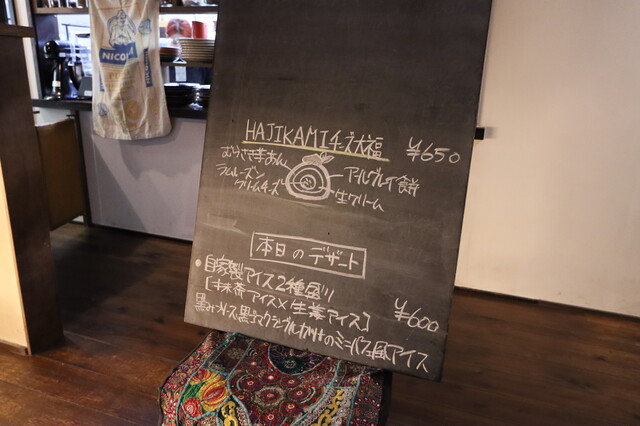 NICO
HAJIKAMIチーズ大福 ¥650
むらさき芋あん
ラムレーズン
クリームチーズ
アールグレイ餅
生クリーム
本日のデザート
●自家製アイス2種盛り
[抹茶アイス×生姜アイス] ¥600
黒みつソース黒ゴマクランブルがけのミニパフェ風アイス